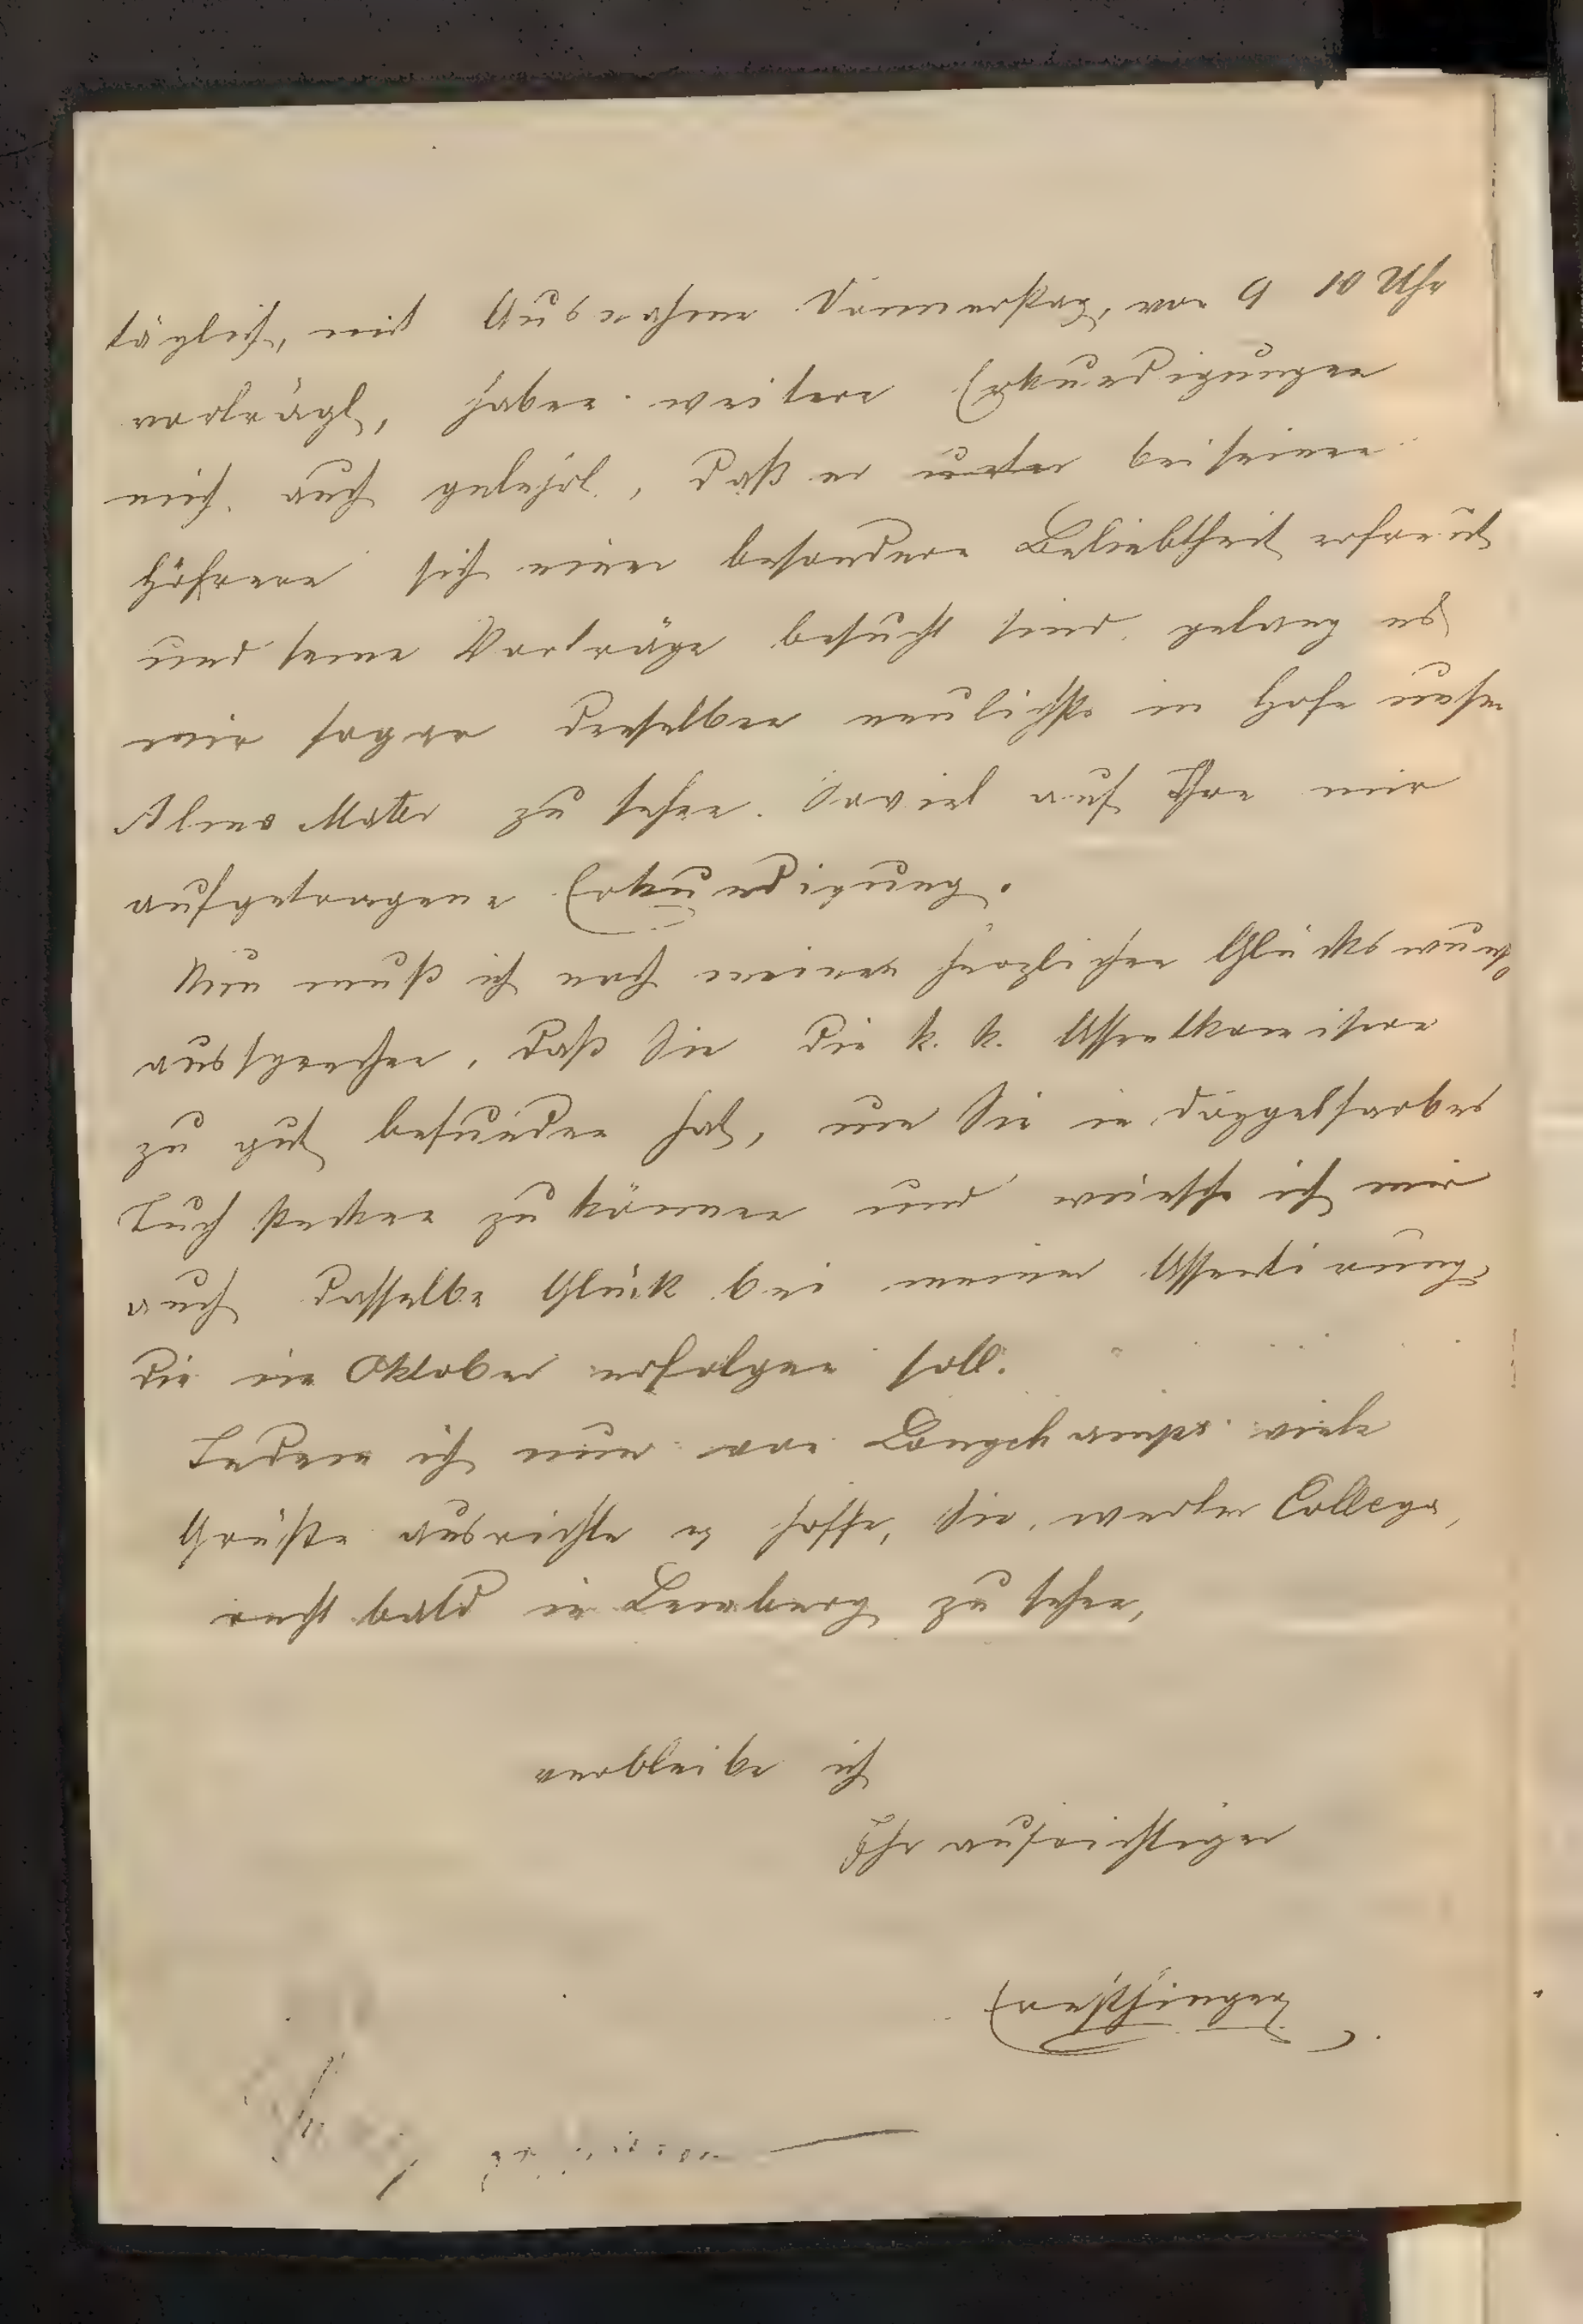 täglich, mit Ausnahme Donnerstag, von 9 10 Uhr
vorträgt, haben weitere Erkundigungen
mich auch gelehrt, daß er unter bei seinen
Höhrern sich einer besondern Beliebtheit erfreut
und seine Vorträge besucht sind. gelang es
mir sogar denselben neulichst im Hofe unser
Alma Mater zu sehen. Soviel auf Ihre mir
aufgetragene Erkundigung.
Nun muß ich noch meinen herzlichen Glückswunsch
aussprechen, daß Sie die k. k. Assentkomision
zu gut befunden hat, um Sie in doppelfarbes
Tuch stecken zu können und wünsche ich mir
auch dasselbe Glück bei meiner Assentirung
die im Oktober erfolgen soll.
Indem ich nun von Longchamps viele
Grüße ausrichte u hoffe, Sie, werter Collega,
recht bald in Lemberg zu sehen,
verbleibe ich
Ihr aufrichtiger